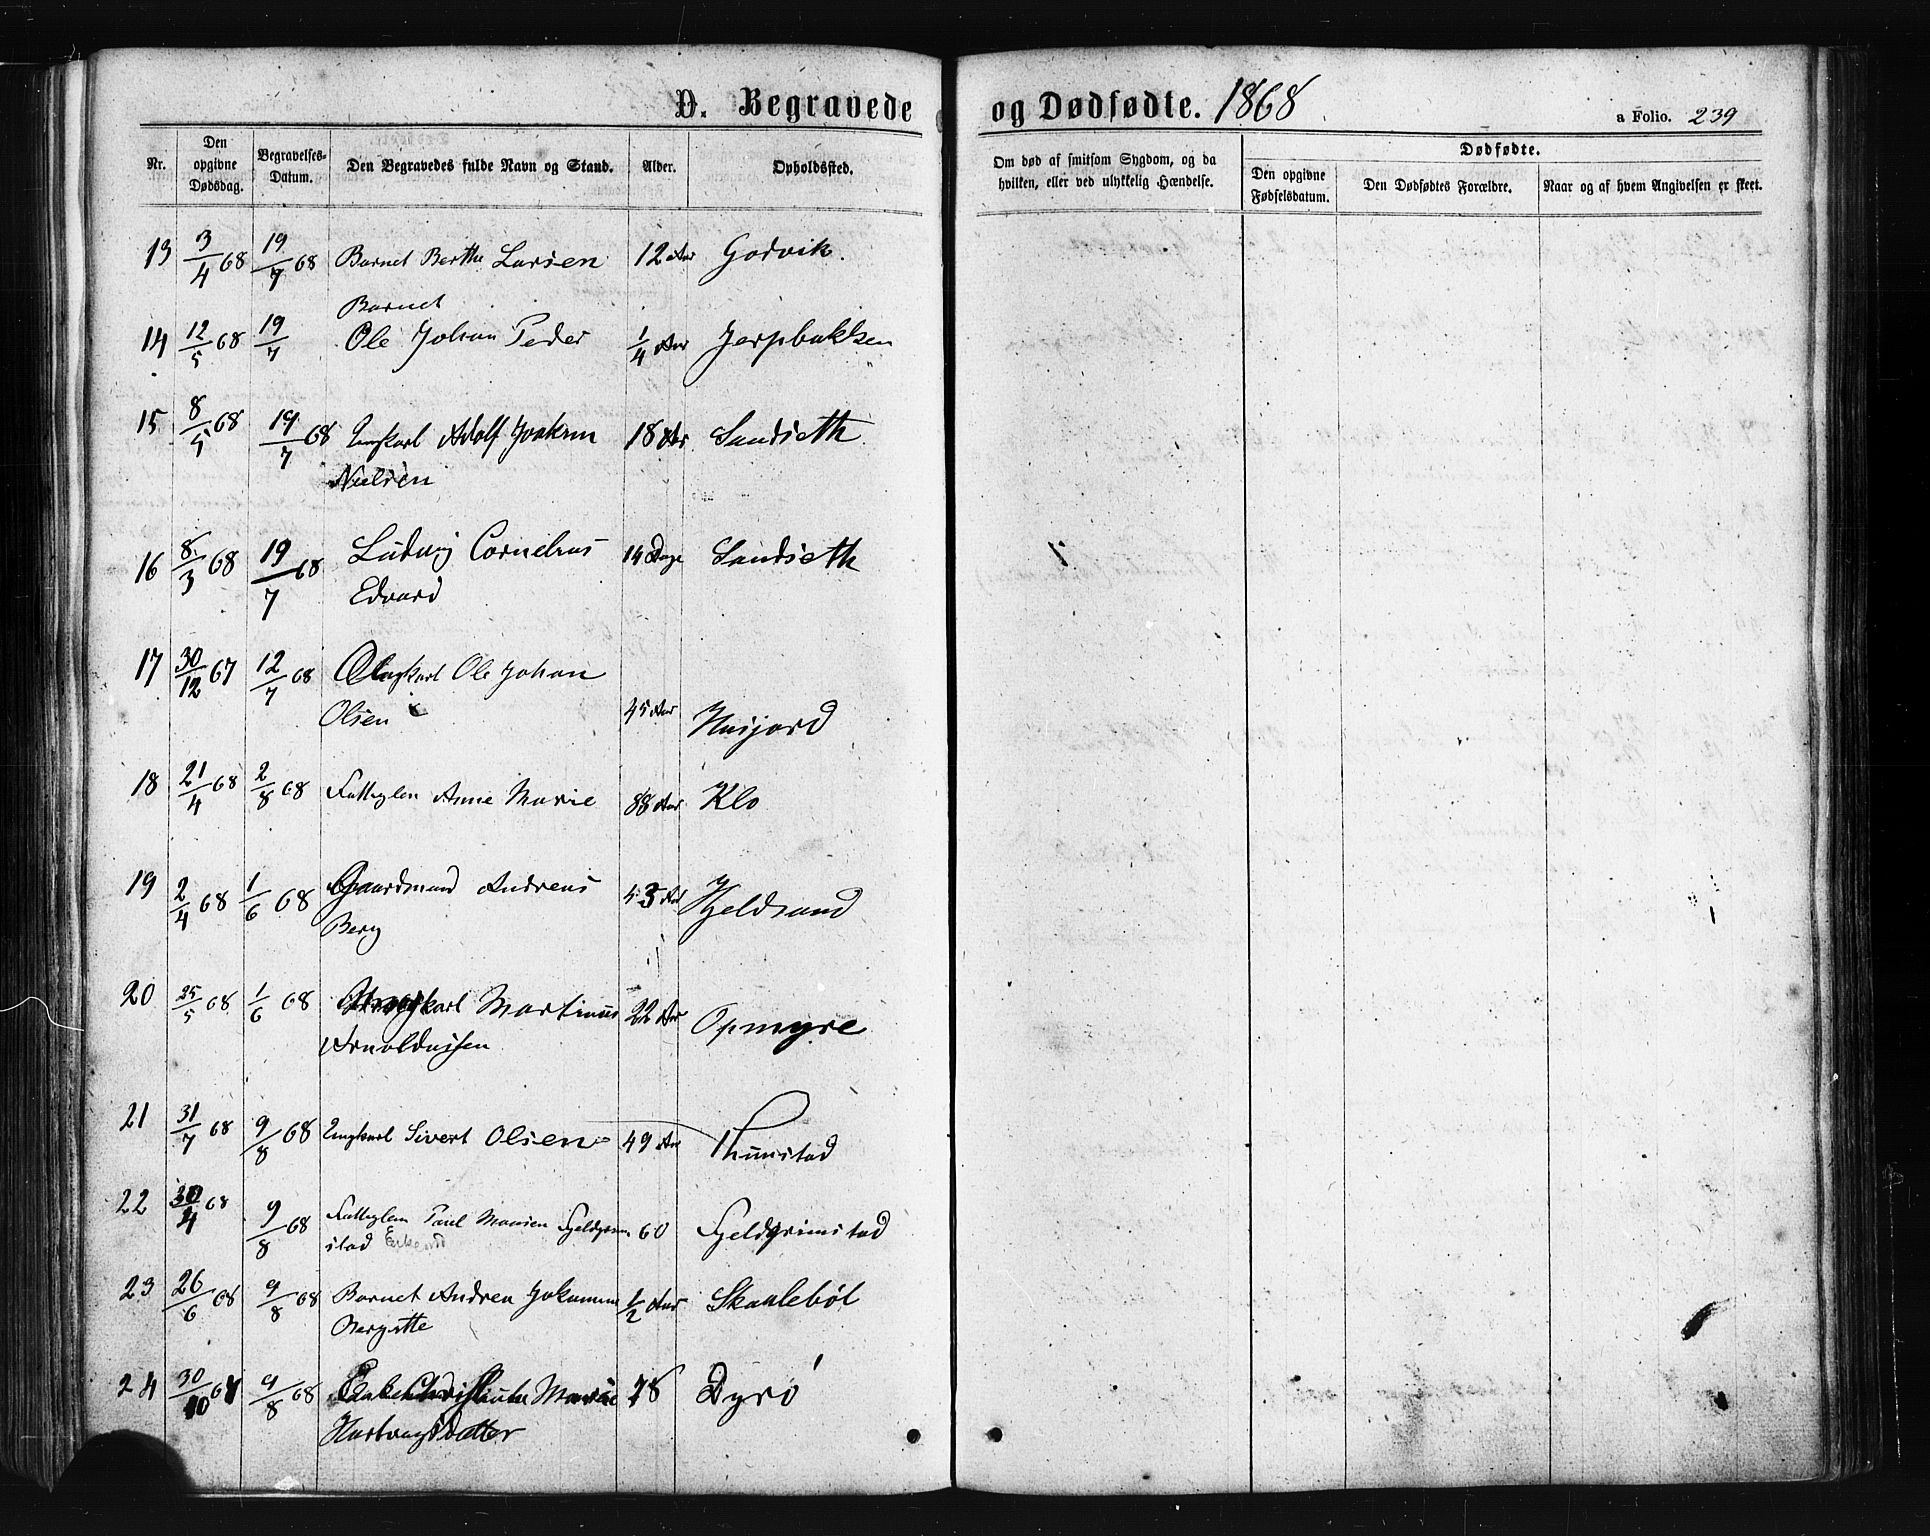 D. Begravede og Dødfødte. 1868 a Folio. 239
Nr. Den opgivne Dødsdag. Begravelses-Datum. Den Begravedes fulde Navn og Stand. Alder. Opholdssted. Om død af smitsom Sygdom, og da hvilken, eller ved ulykkelig Hændelse. Dødfødte. Den opgivne Fødselsdatum. Den Dødfødtes Forældre. Naar og af hvem Angivelsen er skeet.
13 3/4 68 19/7 68 Barnet Berthe Larsen 12 Aar Godvik.
Barnet
14 12/5 68 19/7 Ole Johan Peder 1/4 Aar Jerpbakken
15 8/5 68 19/7 68 Ungkarl Adolf Joakim 18 Aar Sandseth
Nielsen
16 8/3 68 19/7 68 Ludvig Cornelius 14 Dage Sandseth
Edvard
17 30/12 67 12/7 68 Ungkarl Ole Johan
Olsen 45 Aar Husjord
18 21/4 68 2/8 68 Fattiglem Anne Marie 88 Aar Klo
19 2/4 68 1/6 68 Gaardmand Andreas 43 Aar Hjeldsand
Berg
20 25/5 68 1/6 68 Ungkarl Martinus 22 Aar Opmyre
Arnoldussen
21 31/7 68 9/8 68 Ungkarl Sivert Olsen 49 Aar Thunstad
22 30/4 68 9/8 68 Fattiglem Paul Monsen Fjeldgrim 60 Fjeldgrimstad
stad
23 26/6 68 9/8 68 Barnet Andrea Jokumine 1/2 Aar Skaalebøl
Bergitte
24 30/10 67 9/8 68 Enke Christine Marie 78 Dyrø
Hartvigsdatter